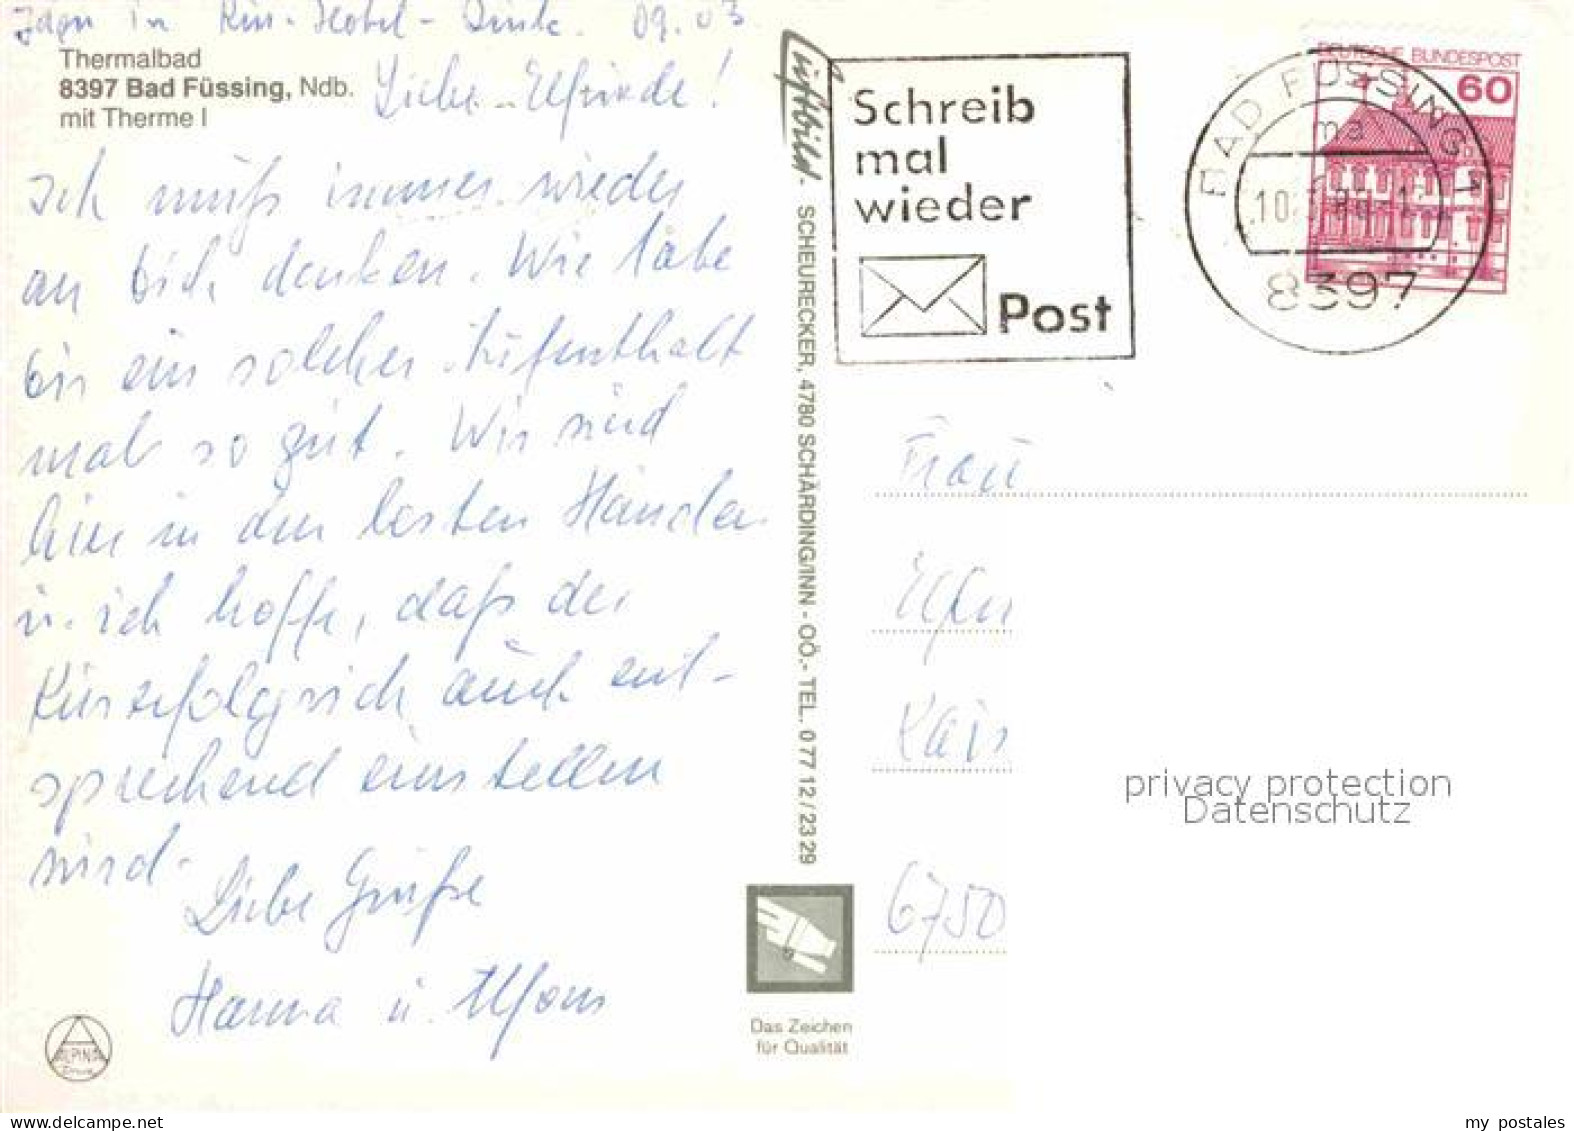 in Kur-Hotel- 09.03
Thermalbad
8397 Bad Füssing, Ndb.
mit Therme I
Liebe Elfriede!
Ich muß immer wieder
an Dich denken. Wie täte
Dir ein solcher Aufenthalt
mal so gut. Wir sind
hier in den besten Händen
u. ich hoffe, daß der
Kurerfolg sich auch ent-
sprechend einstellen
wird.
Liebe Grüße
Hanna u. Alfons
ALPINA
Druck
Luftbild. SCHEURECKER, 4780 SCHÄRDING/INN - OÖ.- TEL. 0 77 12 / 23 29
Das Zeichen
für Qualität
Schreib
mal
wieder
Post
DEUTSCHE BUNDESPOST
60
BAD FÜSSING 1
8397
Frau
Elfri
Kais
6750
privacy protection
Datenschutz
my postales